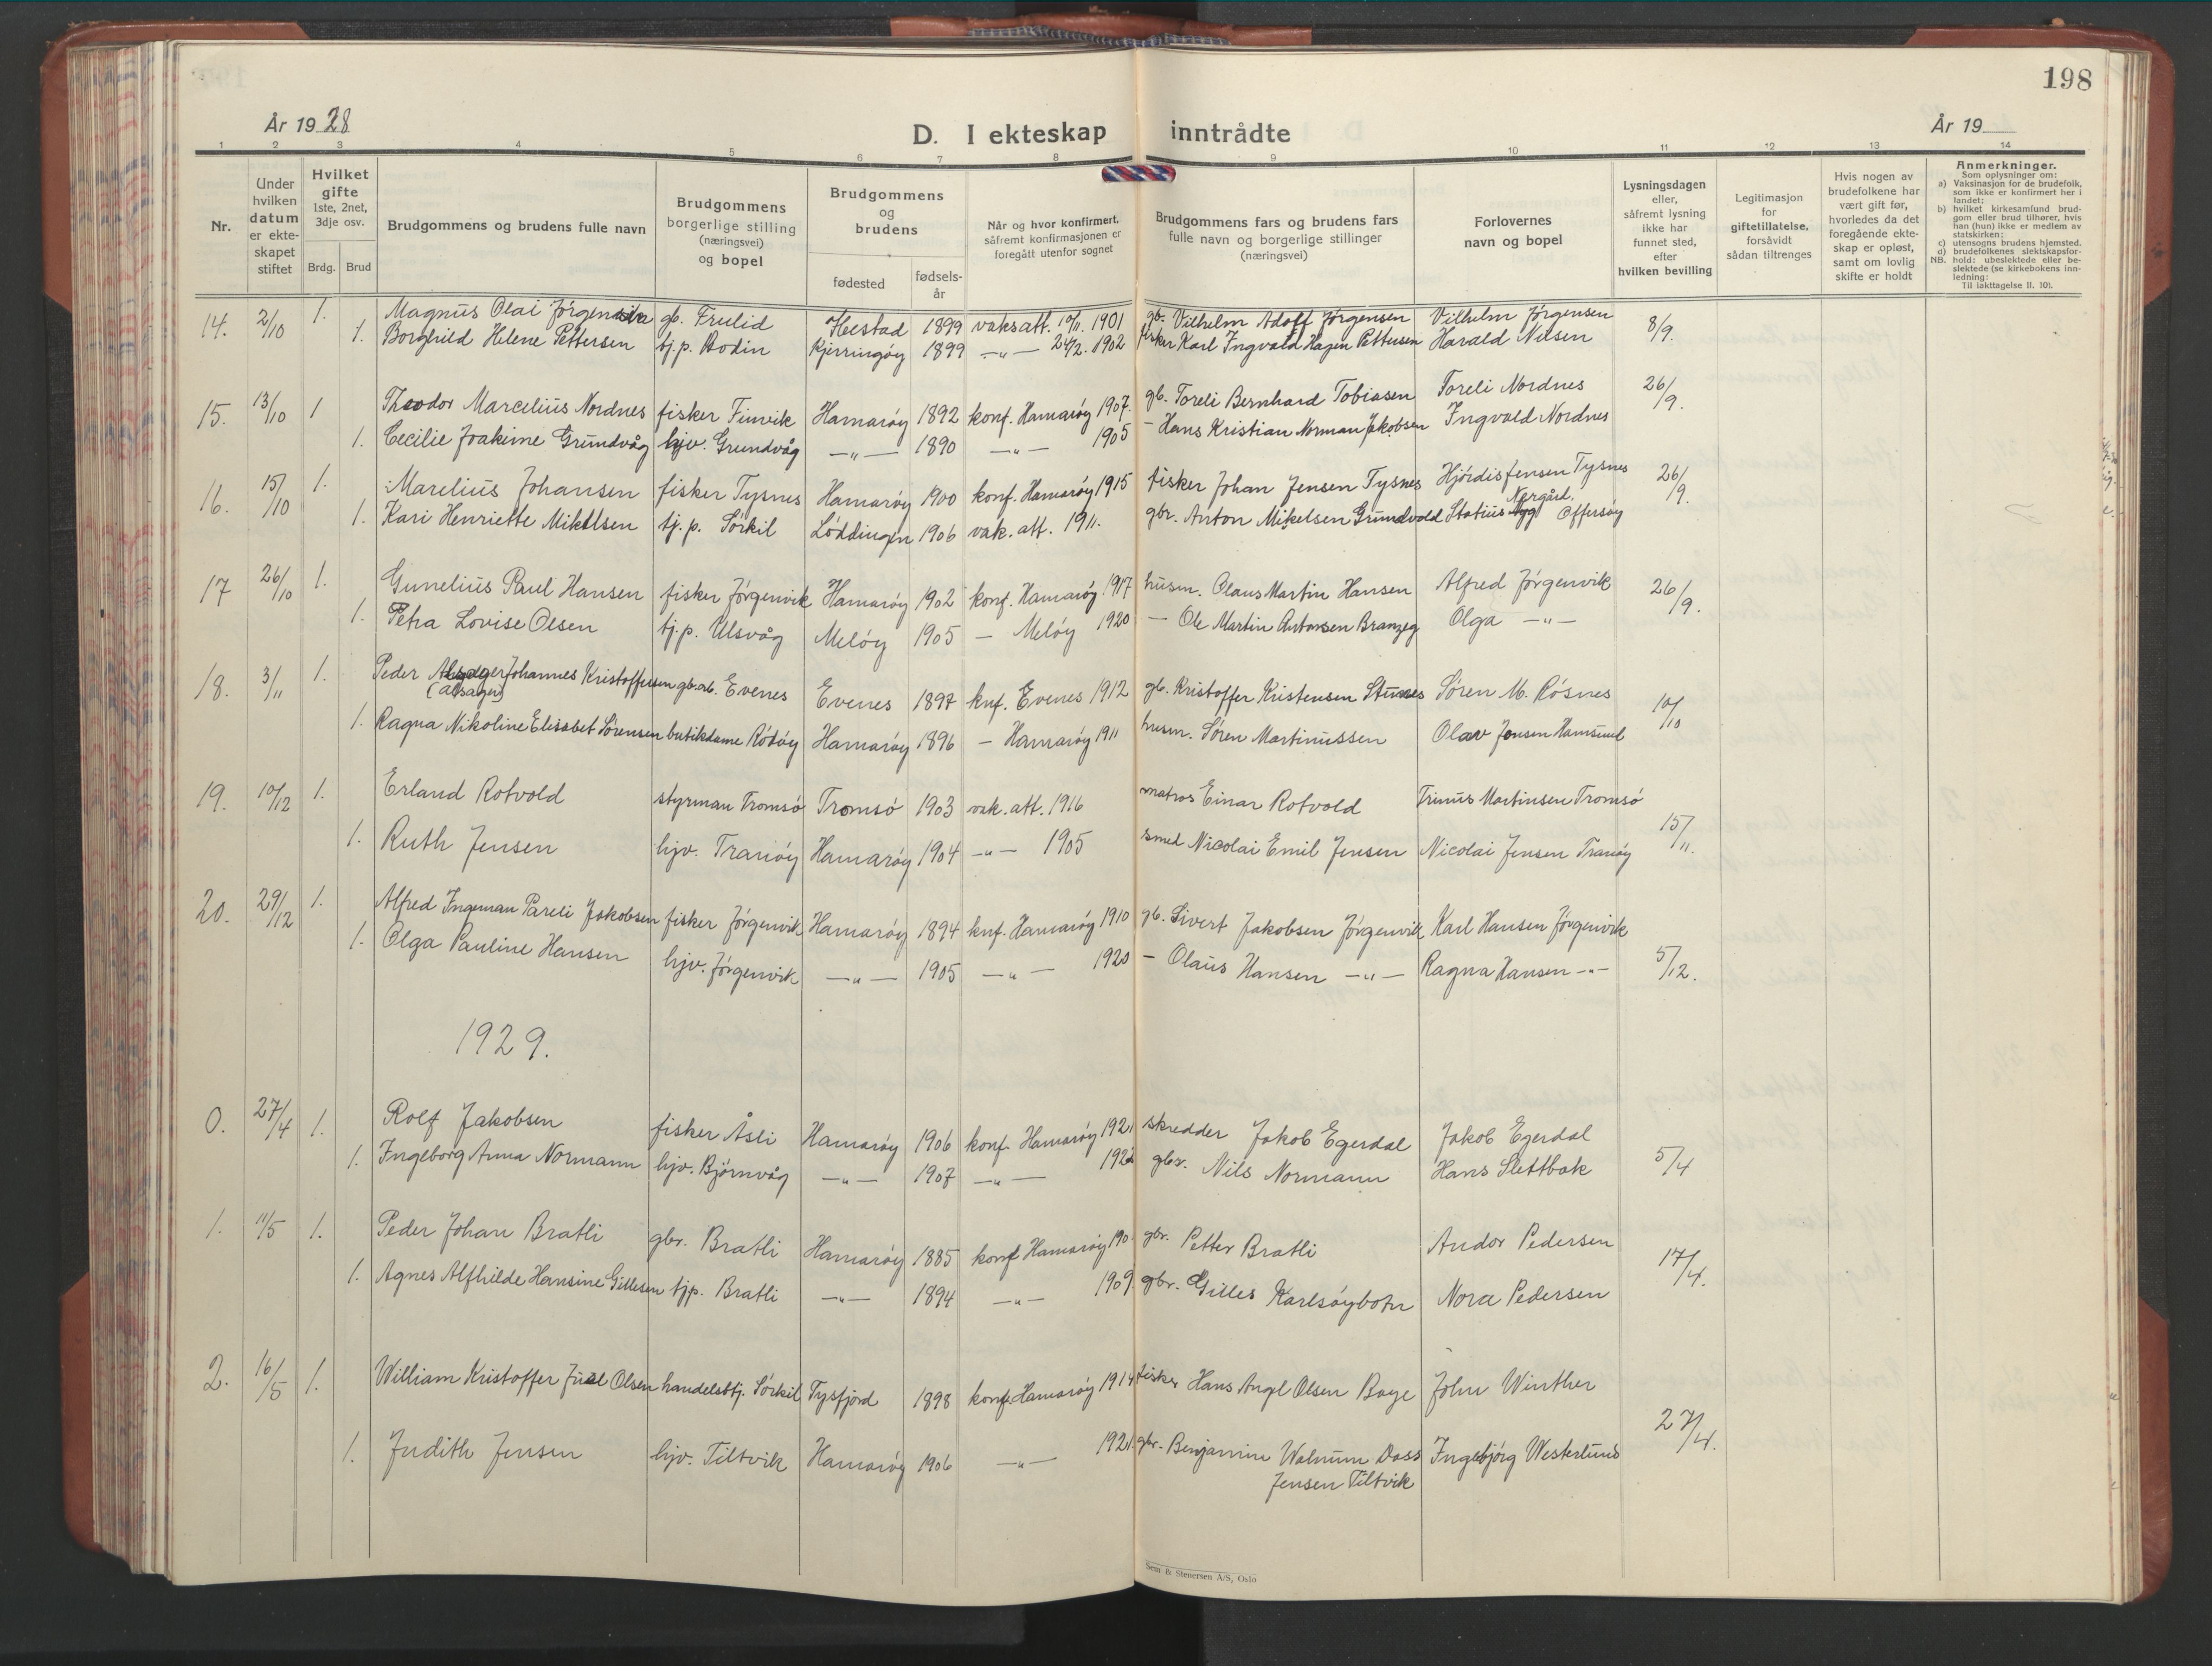 198
År 1928
D. I ekteskap inntrådte
År 19
1 2 3 4 5 6 7 8 9 10 11 12 13 14
Nr.
Under hvilken datum er ekteskapet stiftet
Hvilket gifte 1ste, 2net, 3dje osv.
Brdg. Brud
Brudgommens og brudens fulle navn
Brudgommens borgerlige stilling (næringsvei) og bopel
Brudgommens og brudens
fødested
fødselsår
Når og hvor konfirmert, såfremt konfirmasjonen er foregått utenfor sognet
Brudgommens fars og brudens fars fulle navn og borgerlige stillinger (næringsvei)
Forlovernes navn og bopel
Lysningsdagen eller, såfremt lysning ikke har funnet sted, efter hvilken bevilling
Legitimasjon for giftetillatelse, forsåvidt sådan tiltrenges
Hvis nogen av brudefolkene har vært gift før, hvorledes da det foregående ekteskap er opløst, samt om lovlig skifte er holdt
Anmerkninger.
Som oplysninger om:
a) Vaksinasjon for de brudefolk, som ikke er konfirmert her i landet;
b) hvilket kirkesamfund brudgom eller brud tilhører, hvis han (hun) ikke er medlem av statskirken;
c) utensogns brudens hjemsted.
d) brudefolkenes slektskapsforhold: ubeslektede eller beslektede (se kirkebokens innledning:
NB.
Til iakttagelse II. 10).
14. 2/10 1. Magnus Olai Jørgensen gb. Frulid Hestad 1899 vaksatt. 1901 gb. Vilhelm Adolf Jørgensen Vilhelm Jørgensen 8/9.
1. Borghild Helene Pettersen tj.p. Bodin Kjerringøy 1899 —"— 24/2. 1902 fisker Karl Ingvald Hagen Pettersen Harald Nilsen
15. 13/10 1 Theodor Marcelius Nordnes fisker Finvik Hamarøy 1892 konf. Hamarøy 1907. gb. Toreli Bernhard Tobiasen Toreli Nordnes 26/9.
1. Cecilie Joakime Grundvåg hjv. Grundvåg —"— 1890 —"— 1905 — Hans Kristian Norman Jakobsen Ingvald Nordnes
16. 15/10 1. Marelius Johansen fisker Tysnes Hamarøy 1900 konf. Hamarøy 1915 fisker Johan Jensen Tysnes Hjørdis Jensen Tysnes 26/9.
1. Kari Henriette Mikelsen tj.p. Sørkil Løddingen 1906 vak. att. 1911. gbr. Anton Mikelsen Grundvold Statius Norgård. Offersøy
17 26/10 1. Gunelius Paul Hansen fisker Jørgenvik Hamarøy 1902 konf. Hamarøy 1917 husm. Olaus Martin Hansen Alfred Jørgenvik 26/9.
1. Petra Lovise Olsen tj.p. Ulsvåg Meløy 1905 — Meløy 1920 — Ole Martin Antonsen Branzeg Olga —"—
18. 3/11 1. Peder Johannes Kristoffersen gb.arb. Evenes Evenes 1897 knf. Evenes 1912 gb. Kristoffer Kristensen Stunes Søren M. Røsnes 10/10
(Alsager)
1. Ragna Nikoline Elisabet Sørensen butikdame Rotøy Hamarøy 1896 — Hamarøy 1911 husm. Søren Martinussen Olav Jensen Hamsund
19. 10/12 1. Erland Rotvold styrman Tromsø Tromsø 1903 vak. att. 1916 matros Einar Rotvold Trinus Martinsen Tromsø 15/11.
1. Ruth Jensen hjv. Tranøy Hamarøy 1904 —"— 1905 smed Nicolai Emil Jensen Nicolai Jensen Tranøy
20. 29/12 1. Alfred Ingeman Pareli Jakobsen fisker Jørgenvik Hamarøy 1894 knf. Hamarøy 1910 gb. Sivert Jakobsen Jørgenvik Karl Hansen Jørgenvik 5/12.
1. Olga Pauline Hansen hjv. Jørgenvik —"— 1905 —"— 1920 — Olaus Hansen —"— Ragna Hansen —"—
1929.
0. 27/4 1. Rolf Jakobsen fisker Åsli Hamarøy 1906 konf. Hamarøy 1921 skredder Jakob Egerdal Jakob Egerdal 5/4
1. Ingeborg Anna Normann hjv. Bjørnvåg —"— 1907 —"— gbr. Nils Normann Hans Slettbak
1. 11/5 1. Peder Johan Bratli gbr. Bratli Hamarøy 1885 konf Hamarøy 190 gbr. Petter Bratli Andor Pedersen 17/4.
1. Agnes Alfhilde Hansine Gillesen tjp. Bratli —"— 1894 —"— 1909 gbr. Gilles Karlsøybotn Nora Pedersen
2. 16/5 1. William Kristoffer Juel Olsen handelsbtj. Sørkil Tysfjord 1898 konf. Hamarøy 1914 fisker Hans Angl Olsen Boye John Winther 27/4.
1. Judith Jensen hjv. Tiltvik Hamarøy 1906 —"— 1921. gbr. Benjamin Walnum Dass Ingebjørg Westerlund
Jensen Tiltvik
Sem & Stenersen A/S, Oslo